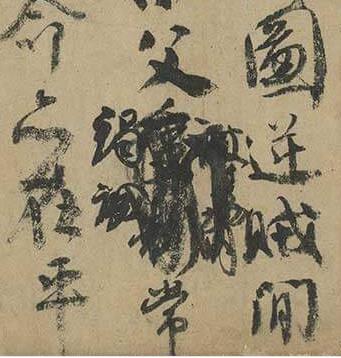 圖逆賊間
父竭誠常
命亦在平